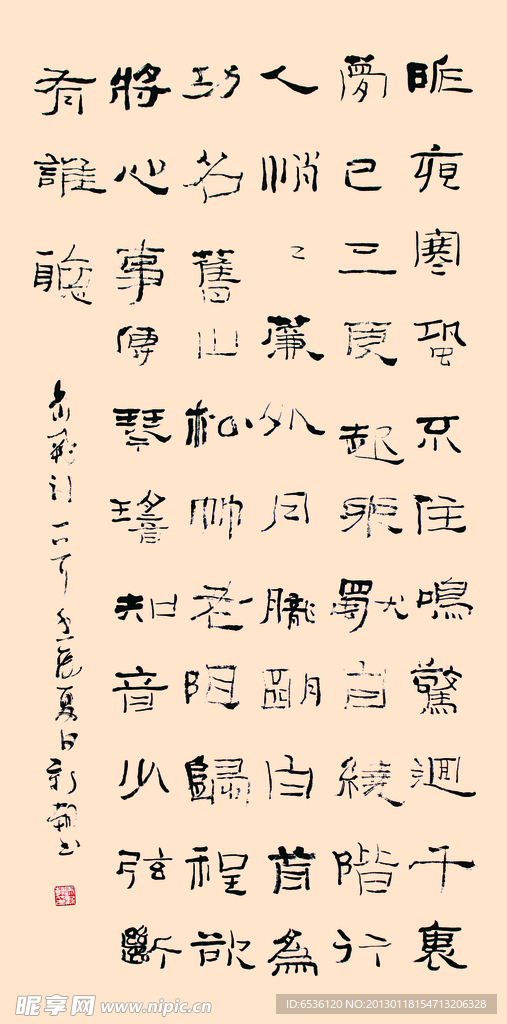 昨夜寒蛩不住鳴驚迴千裏
夢已三更起來獨自繞階行
人悄〻簾外月朧朙白首為
功名舊山松竹老阻歸程欲
將心事傳琴瑤知音少弦斷
有誰聽
岳飛詞一首壬辰夏日新書
昵享网 www.nipic.cn
ID:6536120 NO:20130118154713206328